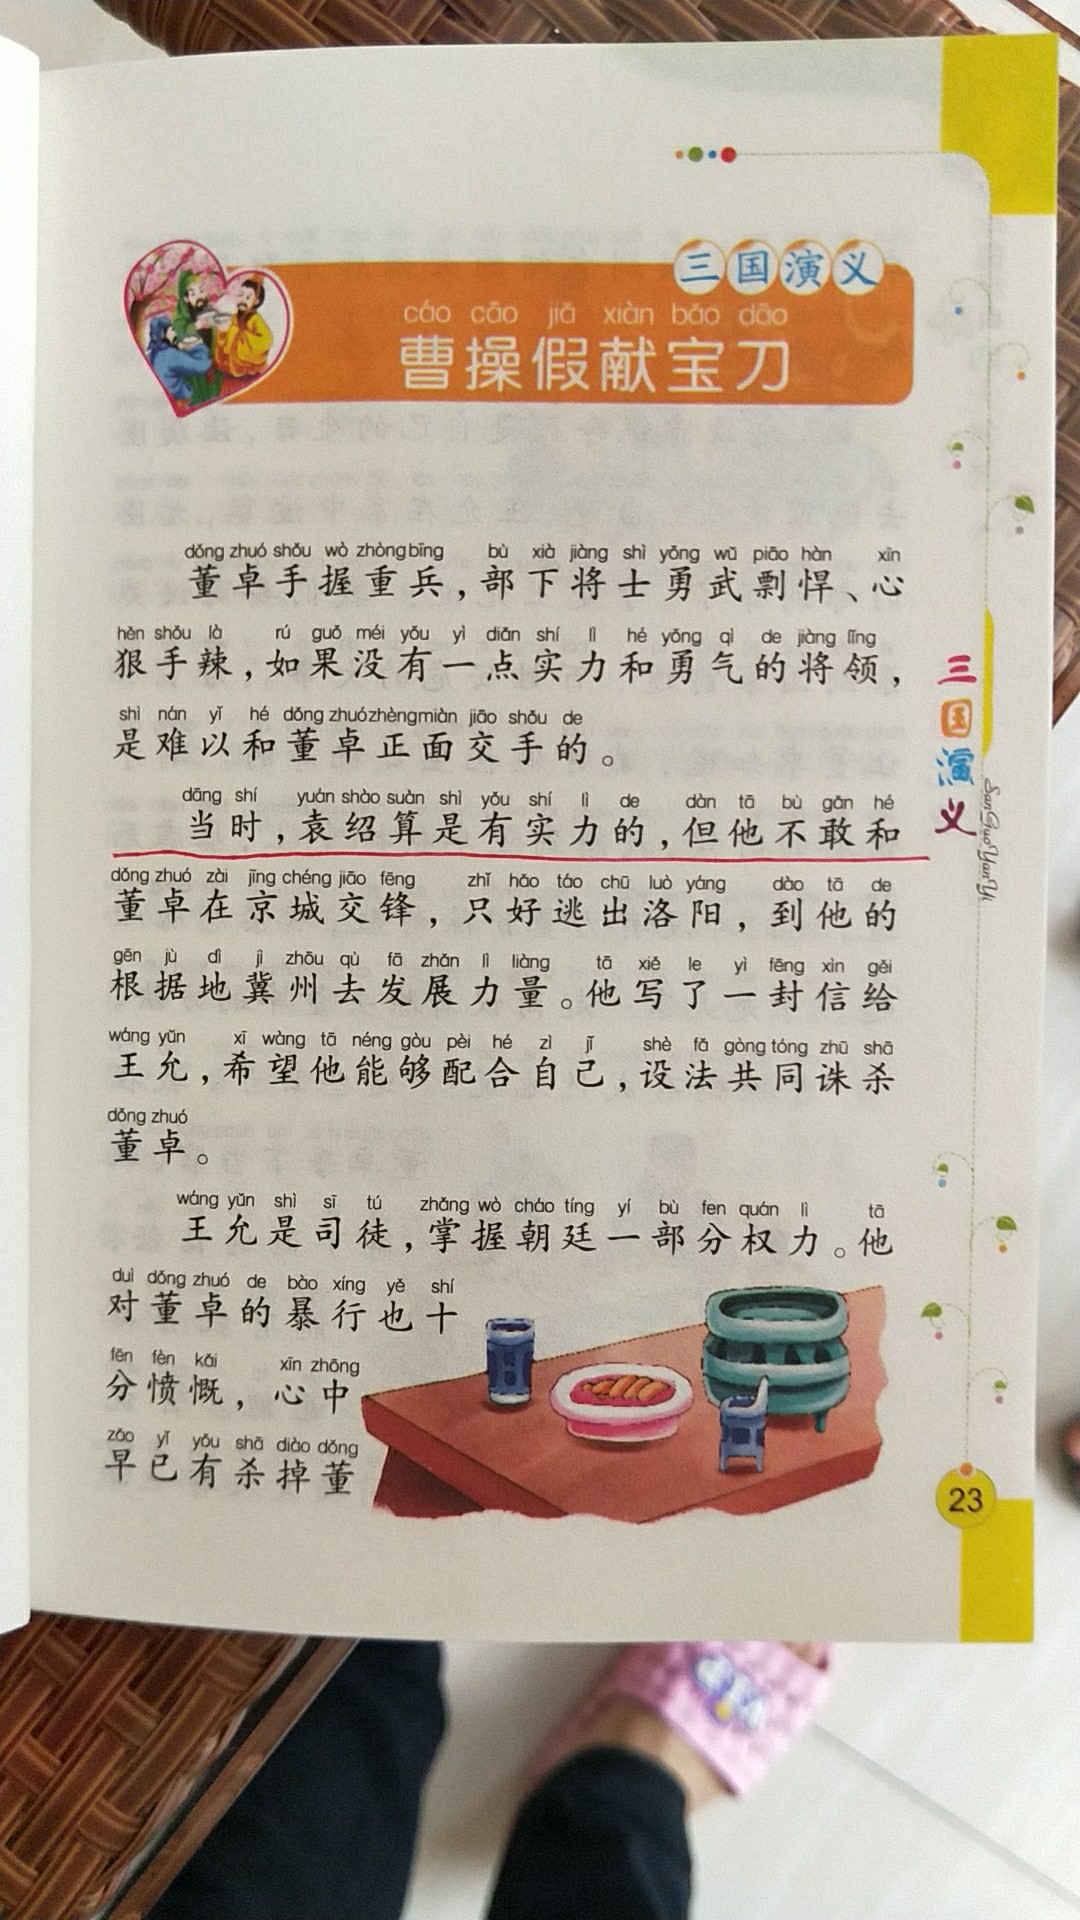 三国演义
cáo cāo jiǎ xiàn bǎo dāo
曹操假献宝刀
dǒng zhuó shǒu wò zhòng bīng bù xià jiàng shì yǒng wǔ piāo hàn xīn
董卓手握重兵，部下将士勇武剽悍、心
hěn shǒu là rú guǒ méi yǒu yì diǎn shí lì hé yǒng qì de jiàng lǐng
狠手辣，如果没有一点实力和勇气的将领，
shì nán yǐ hé dǒng zhuó zhèng miàn jiāo shǒu de
是难以和董卓正面交手的。
dāng shí yuán shào suàn shì yǒu shí lì de dàn tā bù gǎn hé
当时，袁绍算是有实力的，但他不敢和
dǒng zhuó zài jīng chéng jiāo fēng zhǐ hǎo táo chū luò yáng dào tā de
董卓在京城交锋，只好逃出洛阳，到他的
gēn jù dì jì zhōu qù fā zhǎn lì liàng tā xiě le yì fēng xìn gěi
根据地冀州去发展力量。他写了一封信给
wáng yǔn xī wàng tā néng gòu pèi hé zì jǐ shè fǎ gòng tóng zhū shā
王允，希望他能够配合自己，设法共同诛杀
dǒng zhuó
董卓。
wáng yǔn shì sī tú zhǎng wò cháo tíng yí bù fen quán lì tā
王允是司徒，掌握朝廷一部分权力。他
duì dǒng zhuó de bào xíng yě shí
对董卓的暴行也十
fēn fèn kǎi xīn zhōng
分愤慨，心中
zǎo yǐ yǒu shā diào dǒng
早已有杀掉董
三国演义
San Guo Yan Yi
23